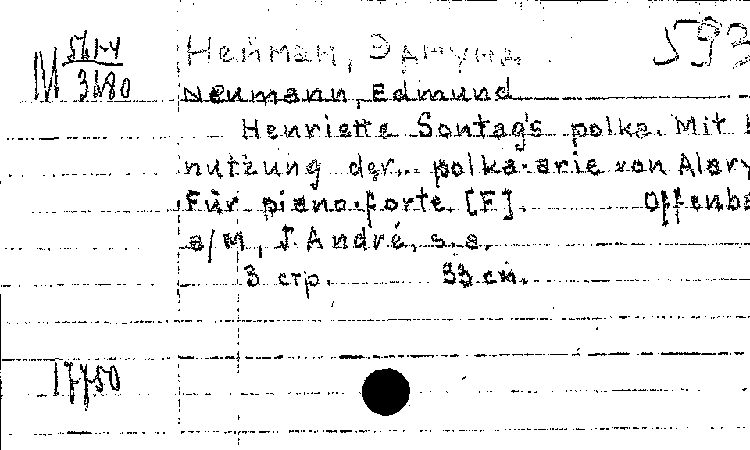 Нейман, Эдмунд 593
М 561-4
3680
Neumann, Edmund
Henriette Sontag's polka. Mit
nutzung der... polka-arie von Alary
Für piano-forte. [F]. Offenba
a/M, J. André, s.a.
3 стр. 33 см.
17750